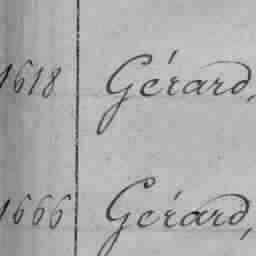 1618 Gérard,
1666 Gérard,